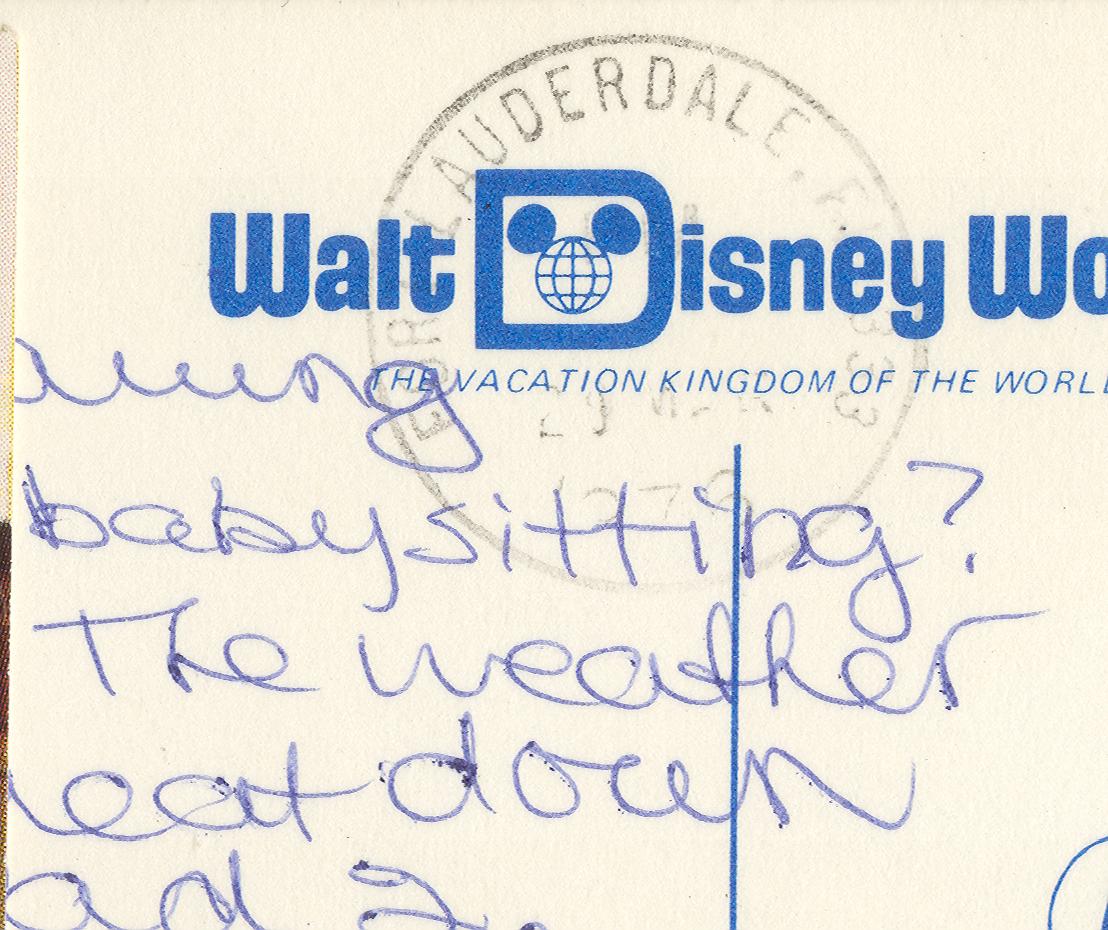 FORT LAUDERDALE, FL 333
Walt Disney Wo
THE VACATION KINGDOM OF THE WORL
babysitting?
The weather
down
ad 2